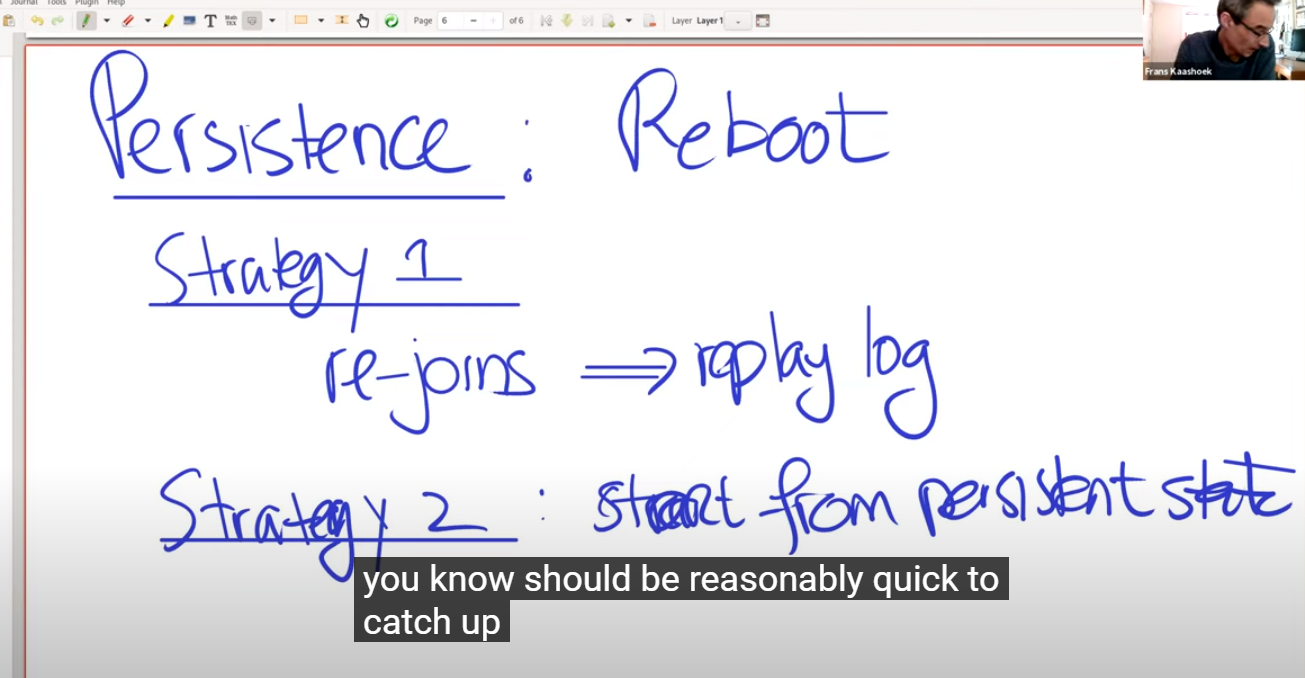 Journal Tools Plugin Help
Page 6 of 6 Layer Layer 1
Frans Kaashoek
Persistence : Reboot
Strategy 1
re-joins ⟹ replay log
Strategy 2 : start from persistent state
you know should be reasonably quick to
catch up